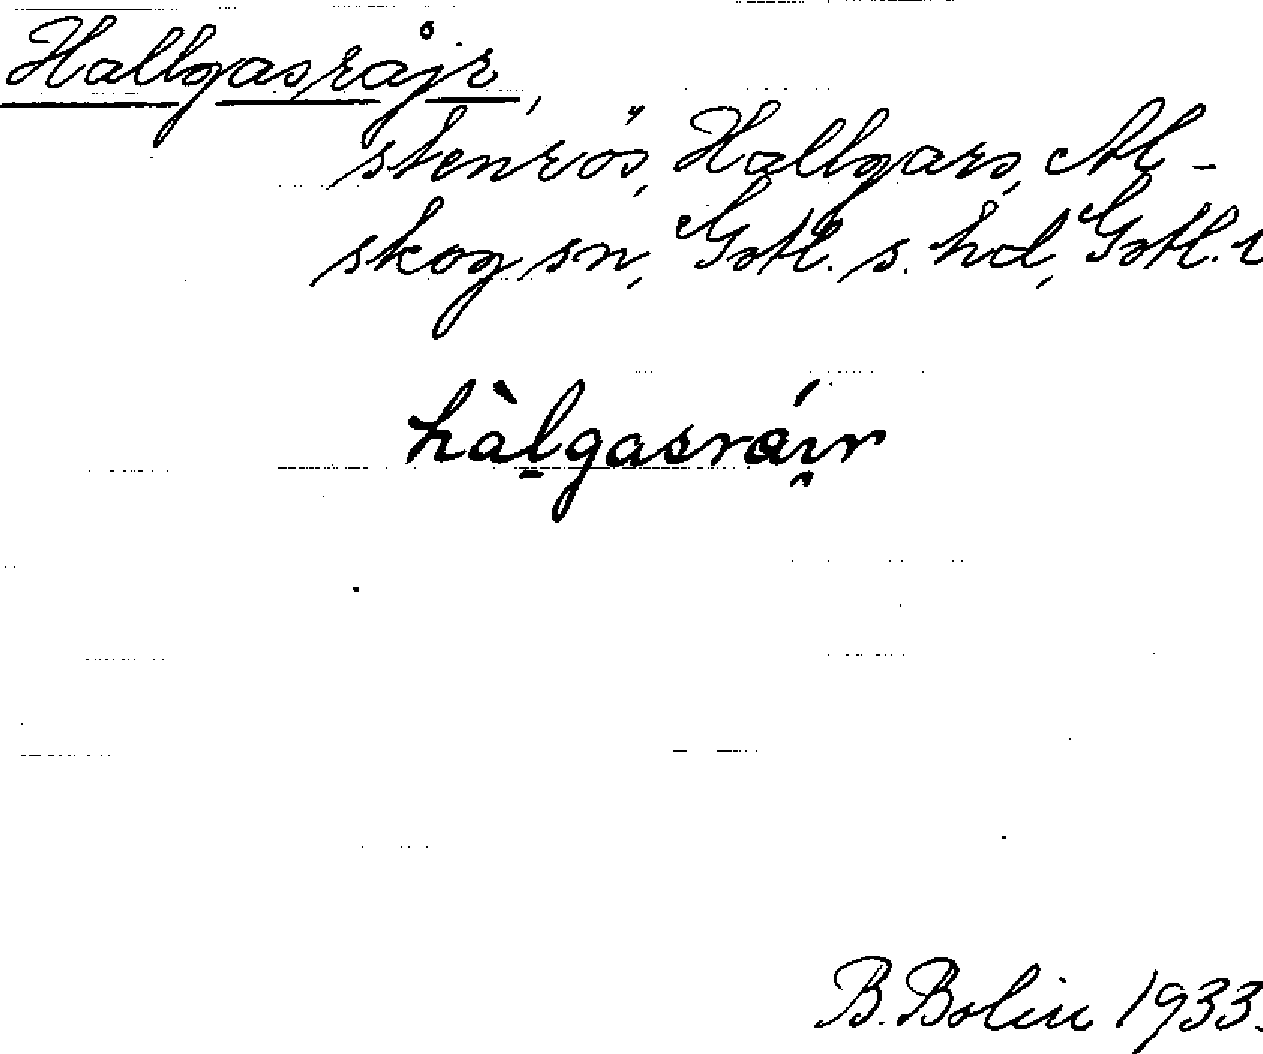 Hallgasråjr,
stenrös, Hallgars, Al-
skog sn, Gotl. s. hd, Gotl. l
hàlgasráir
B. Bolin 1933.